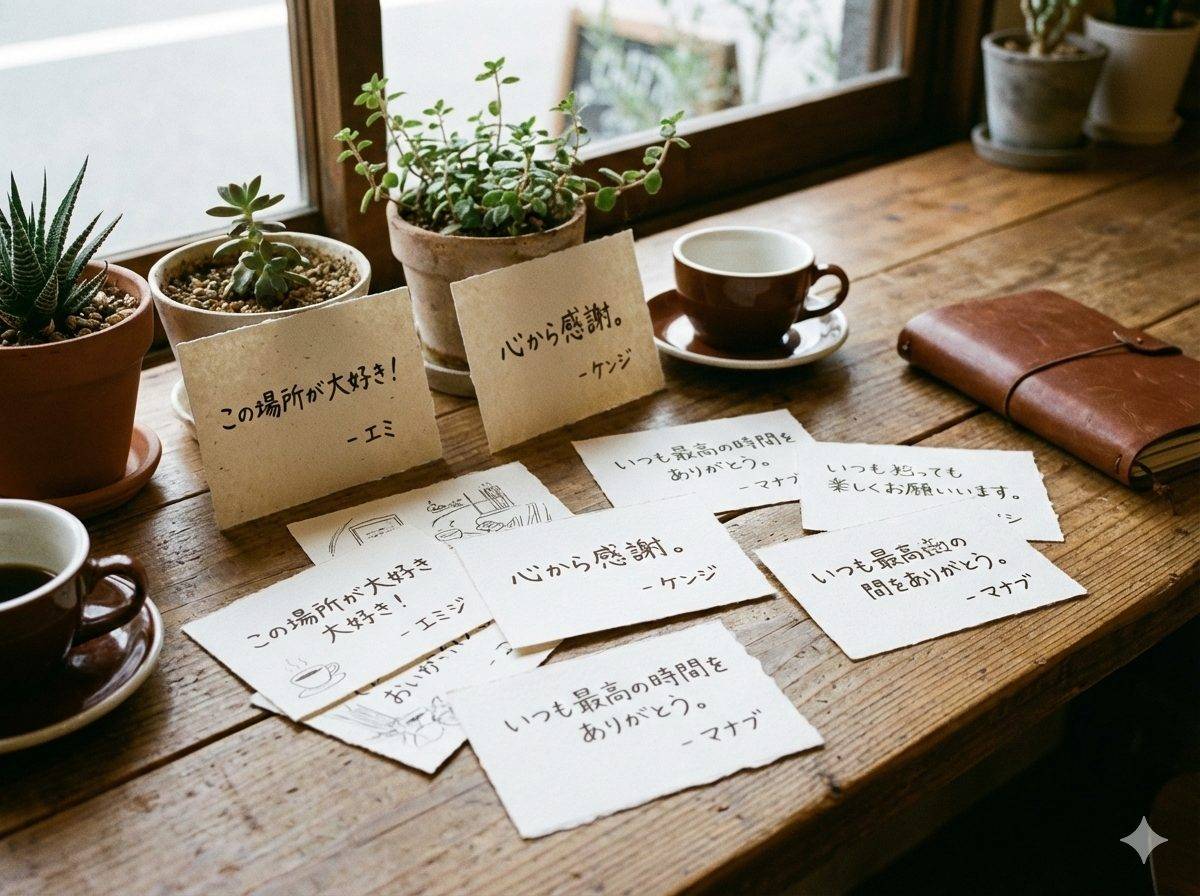 この場所が大好き!
-エミ
心から感謝。
-ケンジ
いつも最高の時間を
ありがとう。
-マナブ
いつも
ても
楽しくお願いいます。
心から感謝。
-ケンジ
いつも最高
の
間をありがとう。
-マナブ
この場所が大好き
大好き!
-エミジ
おいか
いつも最高の時間を
ありがとう。
-マナブ